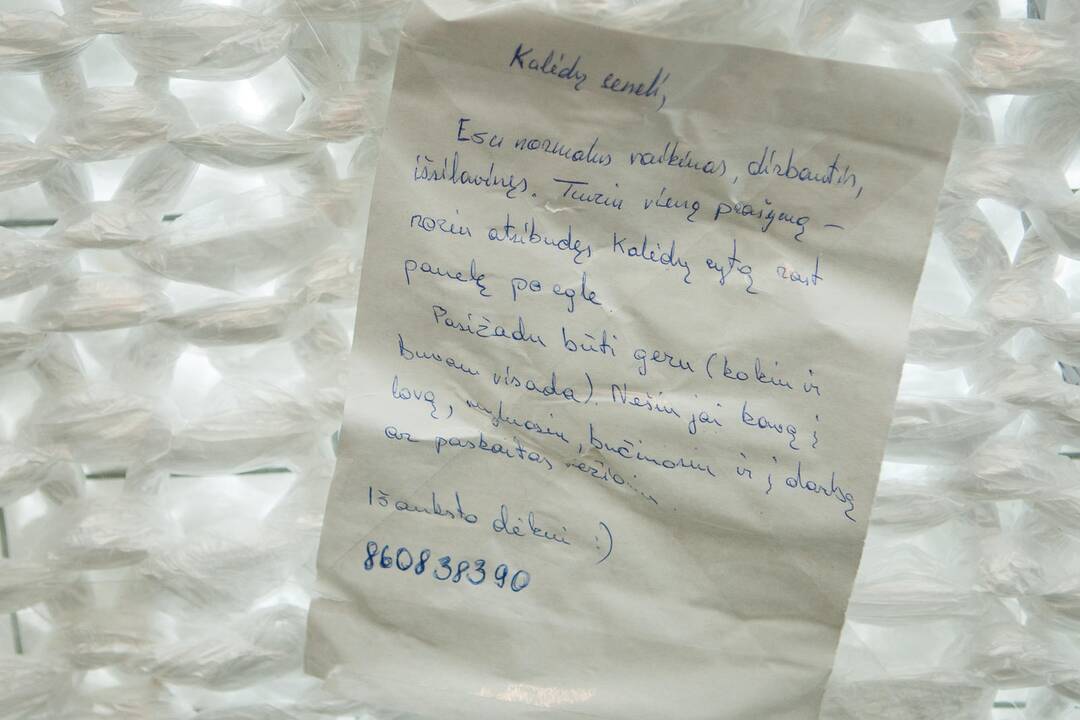 Kalėdų seneli,
Esu normalus vaikinas, dirbantis,
išsilavinęs. Turiu vieną prašymą –
noriu atsibudęs Kalėdų rytą rast
panelę po egle.
Pasižadu būti geru (kokiu ir
buvau visada). Nešiu jai kavą į
lovą, myluosiu, bučiuosiu ir į darbą
ar paskaitas vežiosiu.
Iš anksto dėkui :)
860838390